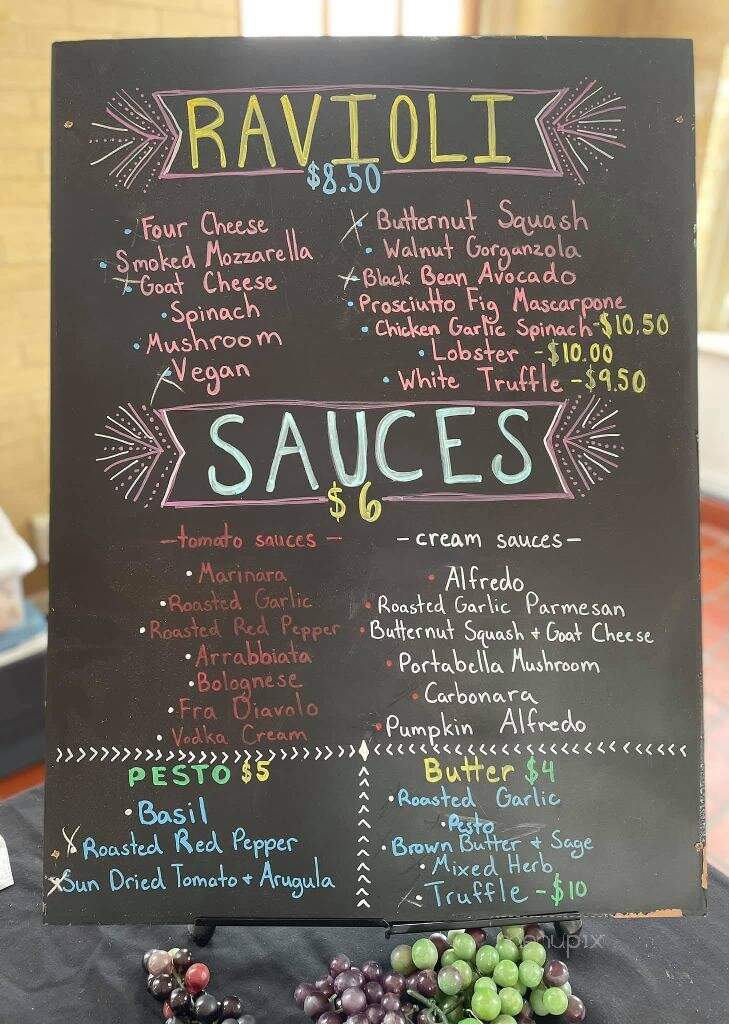 RAVIOLI
$8.50
• Four Cheese
• Smoked Mozzarella
• Goat Cheese
• Spinach
• Mushroom
• Vegan
• Butternut Squash
• Walnut Gorganzola
• Black Bean Avocado
• Prosciutto Fig Mascarpone
• Chicken Garlic Spinach-$10.50
• Lobster -$10.00
• White Truffle -$9.50
SAUCES
$6
-tomato sauces-
• Marinara
• Roasted Garlic
• Roasted Red Pepper
• Arrabbiata
• Bolognese
• Fra Diavolo
• Vodka Cream
-cream sauces-
• Alfredo
• Roasted Garlic Parmesan
• Butternut Squash + Goat Cheese
• Portabella Mushroom
• Carbonara
• Pumpkin Alfredo
PESTO $5
• Basil
• Roasted Red Pepper
• Sun Dried Tomato + Arugula
Butter $4
• Roasted Garlic
• Pesto
• Brown Butter + Sage
• Mixed Herb
• Truffle -$10
menupix